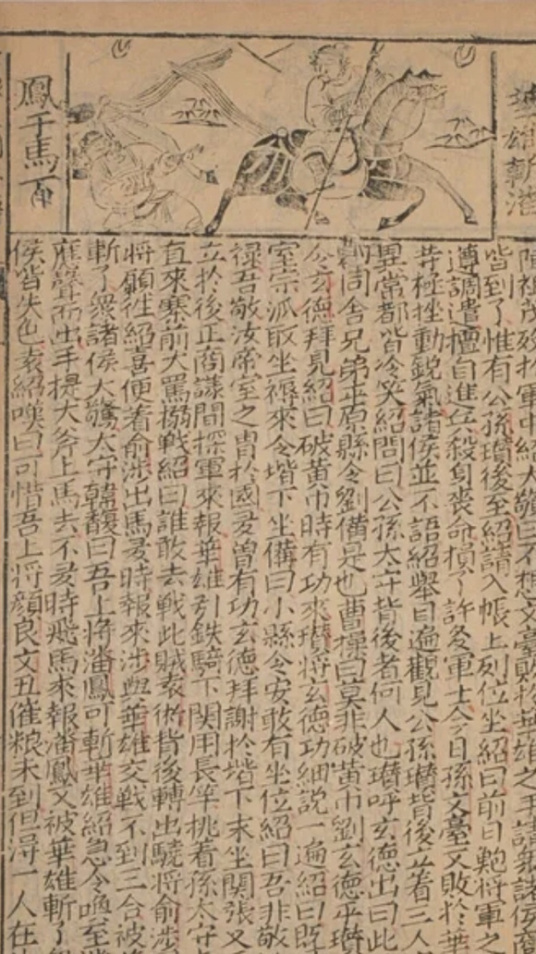 華雄斬潘
祖茂殁於軍中紹大驚曰不想文臺敗於華雄之手請衆諸侯商
皆到了惟有公孫瓚後至紹請入帳上列位坐紹曰前日鮑將軍之
遵調遣擅自進兵殺身喪命損了許多軍士今日孫文臺又敗於華
極挫動銳氣諸侯並不語紹舉目遍觀見公孫瓚背後立着三人
異常都皆冷笑紹問曰公孫太守背後者何人也瓚呼玄德出曰此
幼同舍兄弟平原縣令劉備是也曹操曰莫非破黃巾劉玄德乎瓚
令玄德拜見紹曰破黃巾時有功來瓚將玄德功細說一遍紹曰既
室宗派取坐褥來令堦下坐備曰小縣令安敢有坐位紹曰吾非敬
祿吾敬汝帝室之胄於國多曾有功玄德拜謝於堦下末坐関張叉
立於後正商議間探軍來報華雄引鉄騎下関用長竿挑着孫太守
直來寨前大罵搦戰紹曰誰敢去戰此賊袁術背後轉出驍將俞涉
將願徃紹喜便着俞涉出馬多時報來涉與華雄交戰不到三合被
斬了衆諸侯大驚太守韓馥曰吾上將潘鳳可斬華雄紹急令喚至
應聲而出手提大斧上馬去不多時飛馬來報潘鳳又被華雄斬了
侯皆失色袁紹嘆曰可惜吾上將顏良文丑催粮未到但淂一人在
鳳于馬下